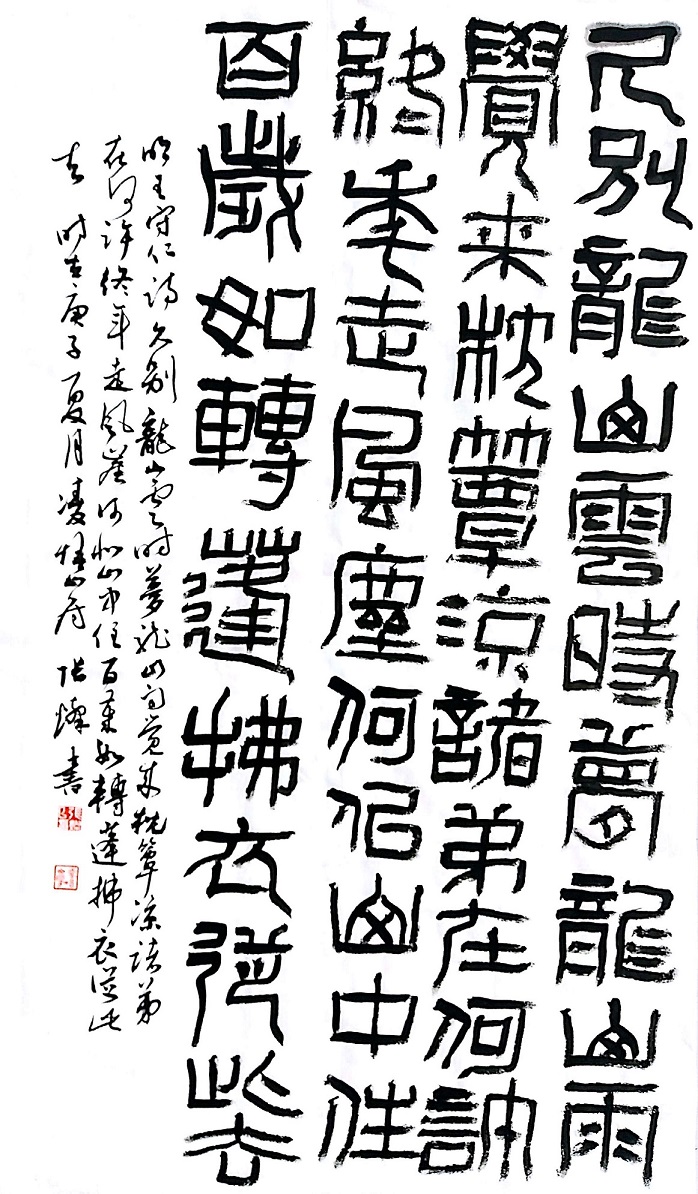 久別龍山雲時夢龍山雨
覺来枕簟凉諸弟在何許
終年走風塵何似山中住
百歲如轉蓬拂衣從此去
明王守仁詩久別龍山雲時夢龍山雨覺来枕簟凉諸弟
在何許終年走風塵何似山中住百歲如轉蓬拂衣從此
去 時在庚子夏月 書